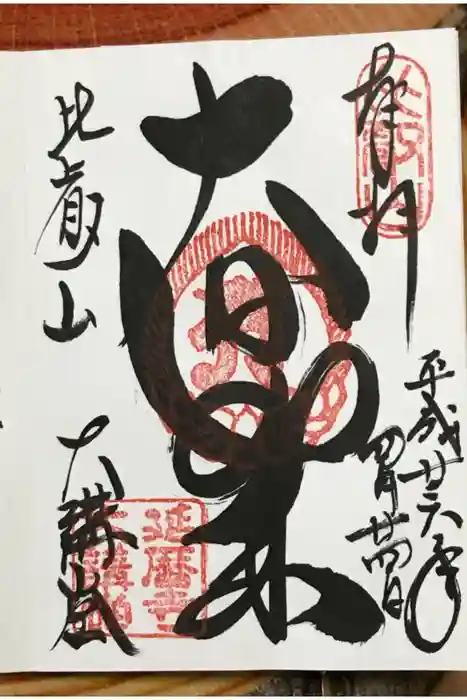 奉拝
平成廿六年
四月廿四日
大日如来
比叡山
大講堂
延暦寺